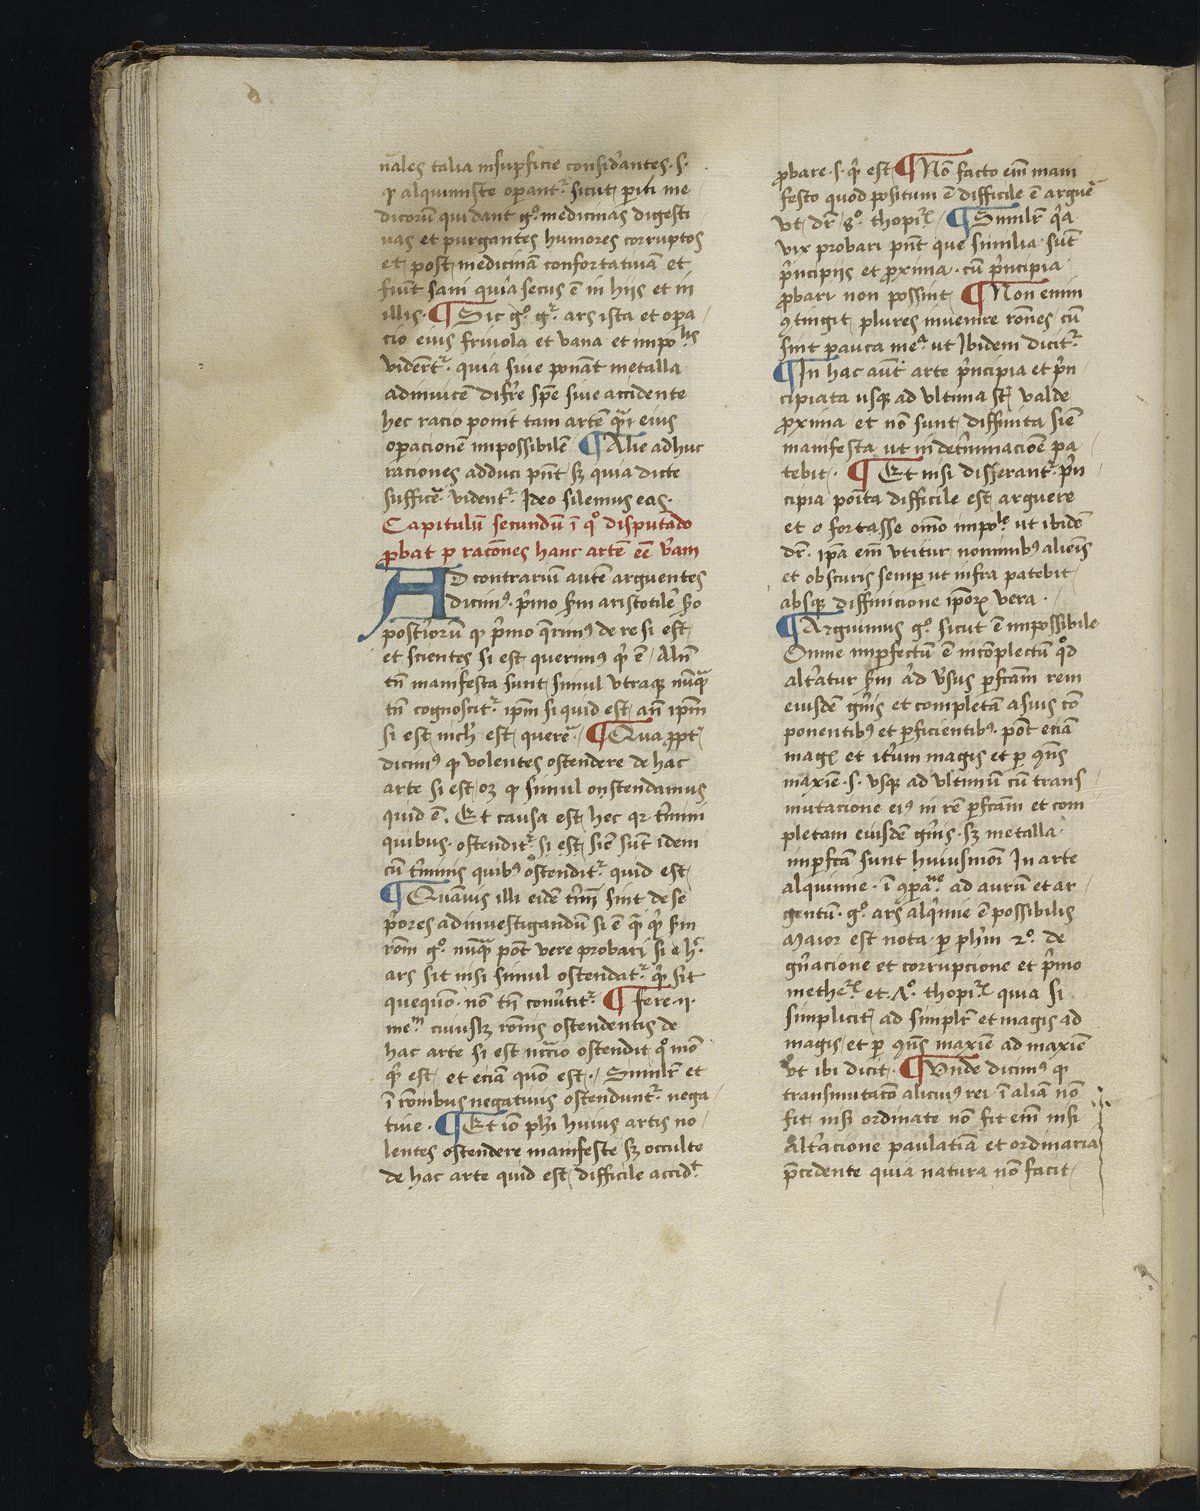 nales talia in supficie considantes · s ·
q alquimiste opant sicut piti me
dicoru qui dant g° medicinas digesti
uas et purgantes humores corruptos
et post medicinā confortatiuā et
fiūt sani quia secus ē in hiis et in
illis · ¶ Sic g° gͬ ars ista et opa
cio eius friuola et vana et impoˡⁱˢ
videretͬ · quia siue ponāt metalla
adinuicē difre spē siue accidente
hec racio ponit tam artē qͣꝫ eius
opacionē impossibilē ¶ Alie adhuc
raciones adduci pn̄t sꝫ quia dicte
suffice videntͬ · Ideo silemus eas ·
Capitulū secundū ī qͦ disputādo
ꝓbat p racōnes hanc artē eē v̓am
AD contrariū autē arguentes
dicimꝰ · pͥmo scdm aristotilē scdo
postiorū qͥ pͥmo qrimꝰ de re si est
et scientes si est querimꝰ qͥd ē · Aliqn̄
tn̄ manifesta sunt simul vtraqꝫ nūqͣꝫ
tn̄ cognoscitͬ ipm̄ si quid est an̄ ipm̄
si est nich̓ est quere · ¶ Qua ꝓpt
dicimꝰ qͥ volentes ostendere de hac
arte si est oꝫ qͥ simul onstendamus
quid ē · Et causa est hec qꝛ t̓mini
quibus · ostenditͬ si est siē sūt idem
cū t̓minis quibꝰ ostenditͬ quid est
¶ Quāuis illi eidē t̓mīi sint de se
pͥores ad inuestigandū si ē qͣꝫ qͥd scdm
rōm g° nūqͣꝫ pōt vere probari si e hͬ
ars sit nisi simul ostendatͬ qͥd sit
quequōꝫ · nō tn̄ conūtitͬ ¶ fere · n ·
meᵐ cuiuslꝫ rōnis ostendentis de
hac arte si est ncc̄io ostendit qͦ mō
qͥd est et eciā quō est · Similr̄ et
ī rōnibus negatiuis ostenduntͬ nega
tiue · ¶ Et iō phi huius artis no
lentes ostendere manifeste sꝫ occulte
de hac arte quid est difficile accidͭ
ꝓbare · s · qͥd est ¶ Nō facto eīm mani
festo quod positum ē difficile ē arguē
vt dr̄ 8° thopiͬ ¶ Similr̄ qͥa
vix probari pn̄t que similia sūt
pͥncipiis et ꝓxima · cū pͥncipia
ꝓbari non possint ¶ Non enim
ꝯtingit plures inuenire rōnes cū
sint pauca meᵃ ut Ibidem dicitͬ
¶ In hac aūt arte pͥncipia et pͥn
cipiata usqꝫ ad vltima st̄ valde
ꝓxima et nō sunt diffinita siē
manifesta ut in det̓minacioē pa
tebit · ¶ Et nisi disserantͬ pͥn
cipia poita difficile est arguere
et o fortasse omō impoˡᵉ ut ibidē
dr̄ · ipā eīm vtitur nominibꝰ alienis
et obscuris semp ut infra patebit
absqꝫ diffinicione ipoꝝ vera ·
¶ Arguimus g° sicut ē impossibile
Omne imꝑfectū ē incōplectū qͦd
alt̓atur scdm ad v̓sus pfcām rem
eiusdē gn̄is et completā a suis cō
ponentibꝰ et pficientibꝰ · pōt eciā
magͥ et it̓um magis et p ꝯn̄s
maxiē · s · vsqꝫ ad vltimū cū trans
mutacione eiꝰ in rē pfcām et com
pletam eiusdē gn̄is · sꝫ metalla
impfcā sunt huiusmōi In arte
alquimie · ī ꝯpaⁿᵉ ad aurū et ar
gentū · g° ars alqͥmie ē possibilis
Maior est nota p ph̓m 2° de
gn̄acione et corrupcione et pͥmo
metheͬ et · v° thopiͬ quia si
simplicit̓ ad simplr̄ et magis ad
magis et p ꝯn̄s maxiē ad maxiē
vt ibi dicit · ¶ Unde dicimꝰ qͥ
transmutacō alicuiꝰ rei ī aliā nō
fit nisi ordinate nō fit eīm nisi
Alt̓acione paulatiā et ordinaria
p̄cedente quia natura nō facit